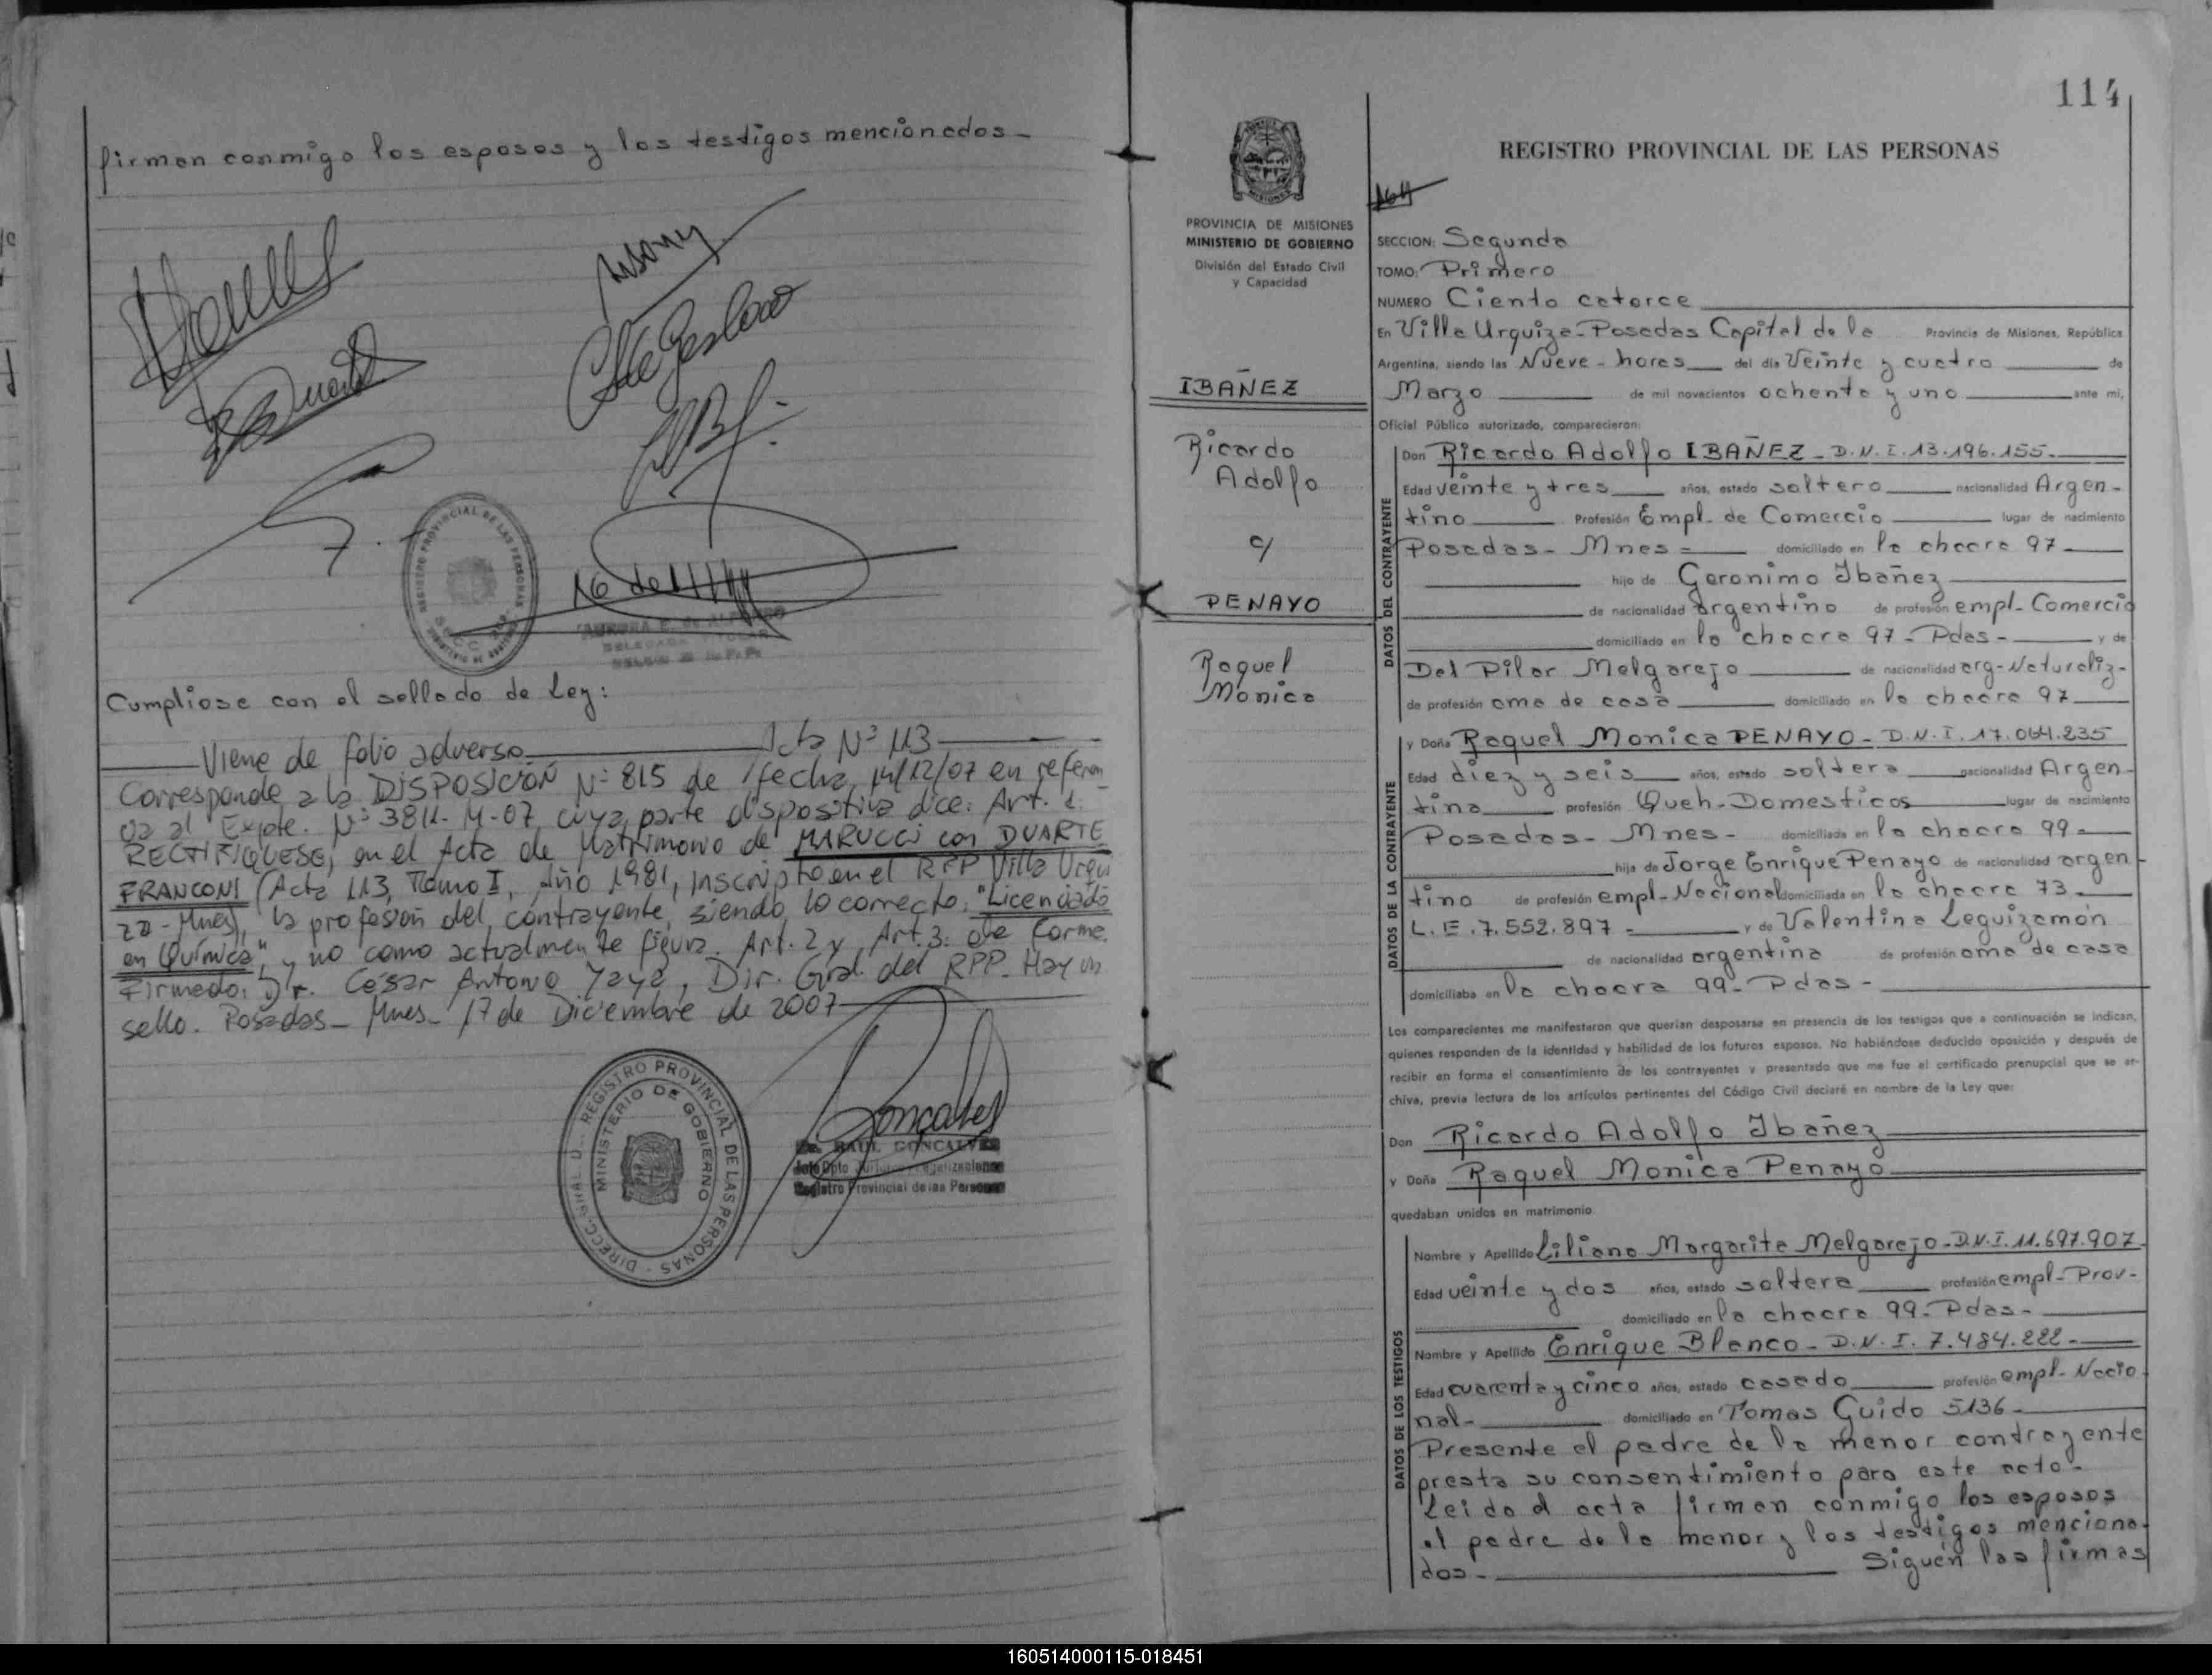 firman conmigo los esposos y los testigos mencionados-
REGISTRO PROVINCIAL DE LAS PERSONAS
Cumpliose con el sellado de Ley:
Viene de folio adverso. Acta Nº 113
Corresponde a la DISPOSICIÓN Nº 815 de fecha 14/12/07 en referen
cia al Expte. Nº 3811-M-07 cuya parte dispositiva dice: Art. 1:
RECTIFIQUESE, en el Acta de Matrimonio de MARUCCI con DUARTE
FRANCONI (Acta 113, Tomo I, Año 1981, inscripto en el RPP Villa Urqui
za-Mnes), la profesión del contrayente, siendo lo correcto: "Licenciado
en Química", y no como actualmente figura. Art. 2 y Art. 3: de forme.
Firmado: Dr. César Antonio Yaya, Dir. Gral. del RPP. Hay un
sello. Posadas- Mnes- 17 de Diciembre de 2007
DIRECC. GRAL. D. REGISTRO PROVINCIAL DE LAS PERSONAS
MINISTERIO DE GOBIERNO
Dr. RAUL GONCALVES
Registro Provincial de las Personas
114
REGISTRO PROVINCIAL DE LAS PERSONAS
PROVINCIA DE MISIONES
MINISTERIO DE GOBIERNO
División del Estado Civil
y Capacidad
IBAÑEZ
Ricardo
Adolfo
c/
PENAYO
Raquel
Monica
SECCION: Segunda
TOMO: Primero
NUMERO Ciento catorce
En Villa Urquiza-Posadas Capital de la Provincia de Misiones, República
Argentina, siendo las Nueve-horas del día Veinte y cuatro de
Marzo de mil novecientos ochenta y uno ante mi,
Oficial Público autorizado, comparecieron:
DATOS DEL CONTRAYENTE
Don Ricardo Adolfo IBAÑEZ-D.N.I.13.196.155.
Edad veinte y tres años, estado soltero nacionalidad Argen-
tino Profesión Empl. de Comercio lugar de nacimiento
Posadas-Mnes= domiciliado en la chacra 97
hijo de Geronimo Ibañez
de nacionalidad argentino de profesión empl-Comercio
domiciliado en la chacra 97-Pdas- y de
Del Pilar Melgarejo de nacionalidad arg-Naturaliz-
de profesión ama de casa domiciliado en la chacra 97
DATOS DE LA CONTRAYENTE
y Doña Raquel Monica PENAYO-D.N.I.17.064.235
Edad diez y seis años, estado soltera nacionalidad Argen-
tina profesión Queh-Domesticos lugar de nacimiento
Posadas-Mnes- domiciliada en la chacra 99-
hija de Jorge Enrique Penayo de nacionalidad argen-
tino de profesión empl-Nacional domiciliada en la chacra 73-
L.E.7.552.897- y de Valentina Leguizamón
de nacionalidad argentina de profesión ama de casa
domiciliaba en la chacra 99-Pdas-
Los comparecientes me manifestaron que querían desposarse en presencia de los testigos que a continuación se indican,
quienes responden de la identidad y habilidad de los futuros esposos. No habiéndose deducido oposición y después de
recibir en forma el consentimiento de los contrayentes y presentado que me fue el certificado prenupcial que se ar-
chiva, previa lectura de los artículos pertinentes del Código Civil declaré en nombre de la Ley que:
Don Ricardo Adolfo Ibañez
y Doña Raquel Monica Penayo
quedaban unidos en matrimonio
DATOS DE LOS TESTIGOS
Nombre y Apellido Liliana Margarita Melgarejo-D.N.I.11.697.907-
Edad veinte y dos años, estado soltera profesión empl-Prov-
domiciliado en la chacra 99-Pdas-
Nombre y Apellido Enrique Blanco-D.N.I.7.484.222-
Edad cuarenta y cinco años, estado casado profesión empl-Nacio-
nal- domiciliado en Tomas Guido 5136-
Presente el padre de la menor contrayente
presta su consentimiento para este acto-
Leido el acta firman conmigo los esposos
el padre de la menor y los testigos menciona-
dos- Siguen las firmas
160514000115-018451